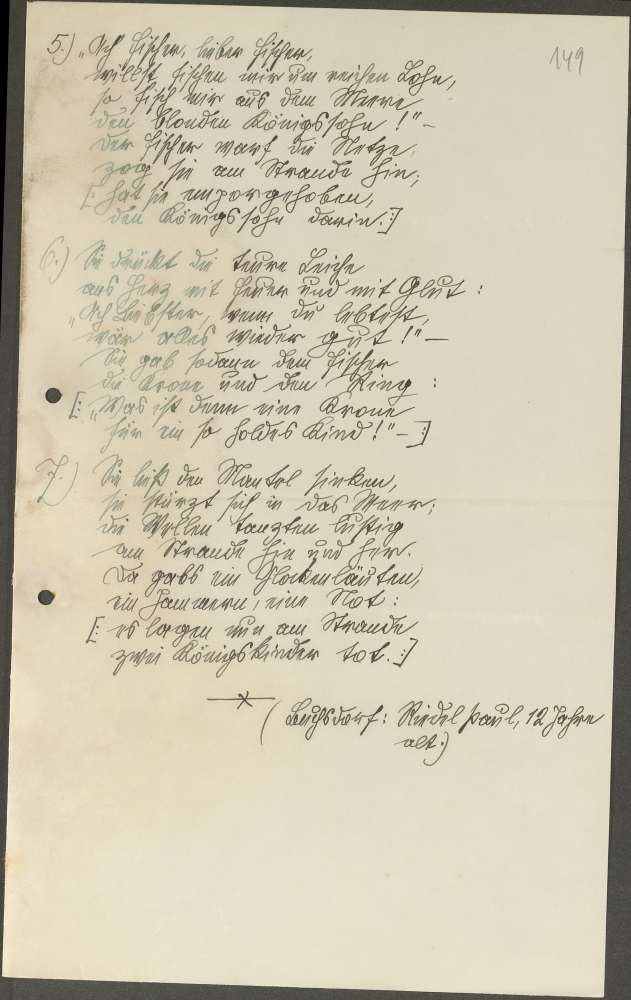 149
5.) „Ach Fischer, lieber Fischer,
willst fischen mir um reichen Lohn,
so fisch mir aus dem Meere
den blonden Königssohn!" –
Der Fischer warf die Netze,
zog sie am Strande hin;
[: hat sie emporgehoben,
den Königssohn darin. :]
6.) Sie drückt die teure Leiche
ans Herz mit Feuer und mit Glut:
„Ach Liebster, wenn du lebtest,
wär alles wieder gut!" –
Sie gab sodann dem Fischer
die Krone und den Ring:
[: „Was ist denn eine Krone
für ein so holdes Kind!" – :]
7.) Sie ließ den Mantel sinken,
sie stürzt sich in das Meer;
die Wellen tanzten lustig
am Strande hin und her.
Da gabs ein Glockenläuten,
ein Jammern, eine Not:
[: es lagen nun am Strande
zwei Königskinder tot. :]
(Luchsdorf: Riedel Paul, 12 Jahre
alt.)